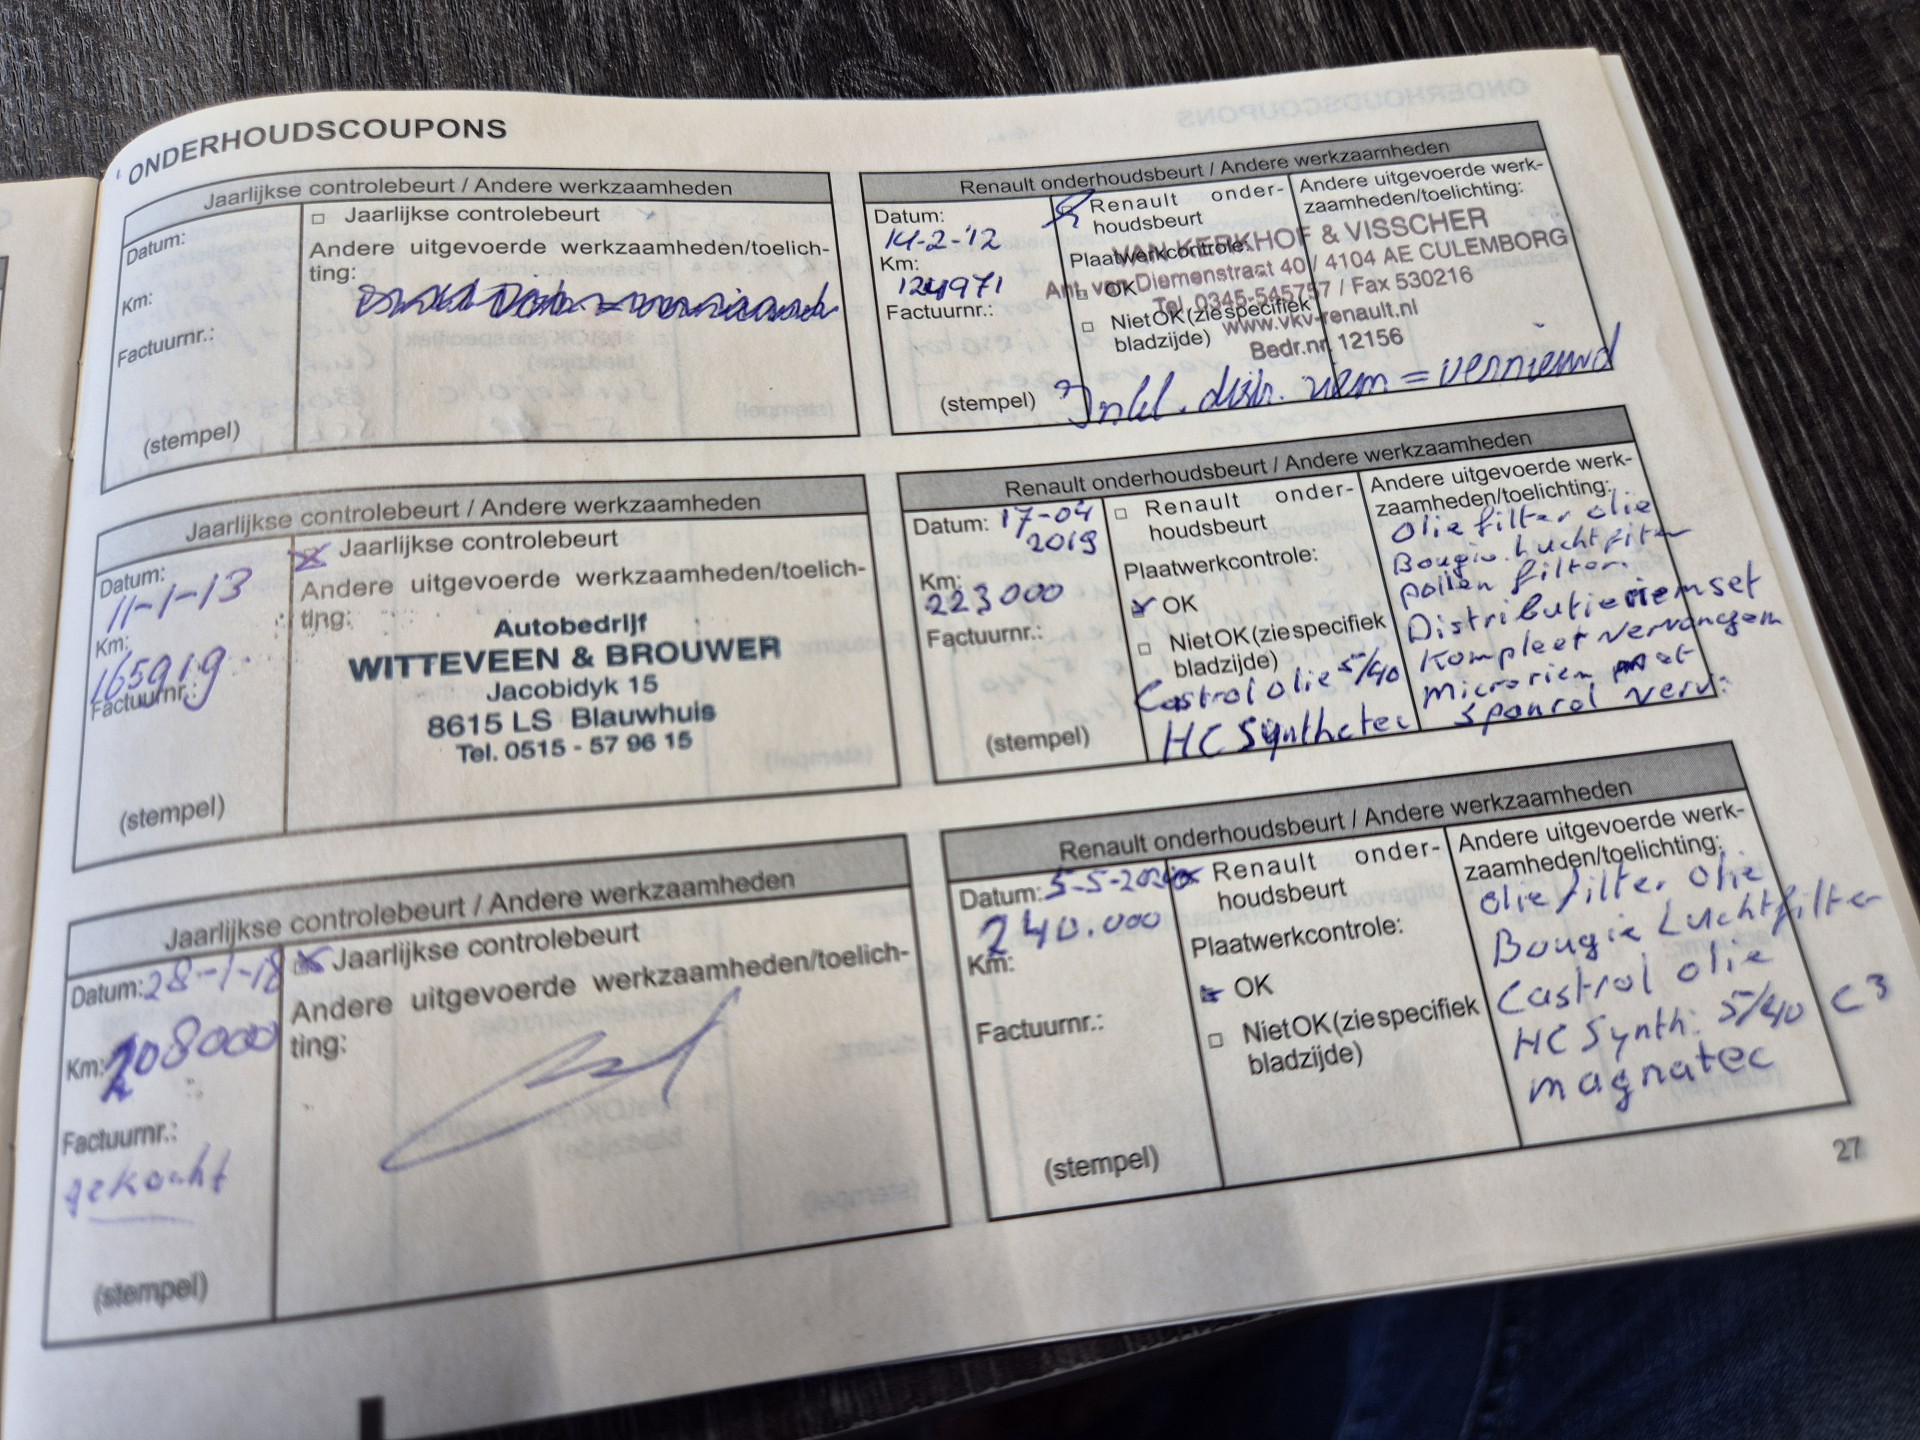 ONDERHOUDSCOUPONS
Jaarlijkse controlebeurt / Andere werkzaamheden
Datum:
Km:
Factuurnr.:
(stempel)
□ Jaarlijkse controlebeurt
Andere uitgevoerde werkzaamheden/toelich-
ting:
Renault onderhoudsbeurt / Andere werkzaamheden
Datum:
14-2-'12
Km:
124971
Factuurnr.:
(stempel)
Renault onder-
houdsbeurt
Plaatwerkcontrole:
□ OK
□ Niet OK (zie specifiek
bladzijde)
Andere uitgevoerde werk-
zaamheden/toelichting:
VAN KERKHOF & VISSCHER
Ant. van Diemenstraat 40 / 4104 AE CULEMBORG
Tel. 0345-545757 / Fax 530216
www.vkv-renault.nl
Bedr.nr. 12156
Inkl. distr. riem = vernieuwd
Jaarlijkse controlebeurt / Andere werkzaamheden
Datum:
11-1-13
Km:
165919
Factuurnr.:
(stempel)
Jaarlijkse controlebeurt
Andere uitgevoerde werkzaamheden/toelich-
ting:
Autobedrijf
WITTEVEEN & BROUWER
Jacobidyk 15
8615 LS Blauwhuis
Tel. 0515 - 57 96 15
Renault onderhoudsbeurt / Andere werkzaamheden
Datum: 17-04
2019
Km:
223000
Factuurnr.:
(stempel)
□ Renault onder-
houdsbeurt
Plaatwerkcontrole:
OK
□ Niet OK (zie specifiek
bladzijde)
Castrol olie 5/40
HC Synthetec
Andere uitgevoerde werk-
zaamheden/toelichting:
Olie filter olie
Bougie. Luchtfilter
pollen filter.
Distributieriemset
Kompleet vervangem
Microriem met
Spanrol verv:
Jaarlijkse controlebeurt / Andere werkzaamheden
Datum: 28-1-18
Km: 208000
Factuurnr.:
gekocht
(stempel)
Jaarlijkse controlebeurt
Andere uitgevoerde werkzaamheden/toelich-
ting:
Renault onderhoudsbeurt / Andere werkzaamheden
Datum: 5-5-2020
240.000
Km:
Factuurnr.:
(stempel)
Renault onder-
houdsbeurt
Plaatwerkcontrole:
OK
□ Niet OK (zie specifiek
bladzijde)
Andere uitgevoerde werk-
zaamheden/toelichting:
Olie filter Olie
Bougie Luchtfilter
Castrol olie
HC Synth. 5/40 C3
magnatec
27